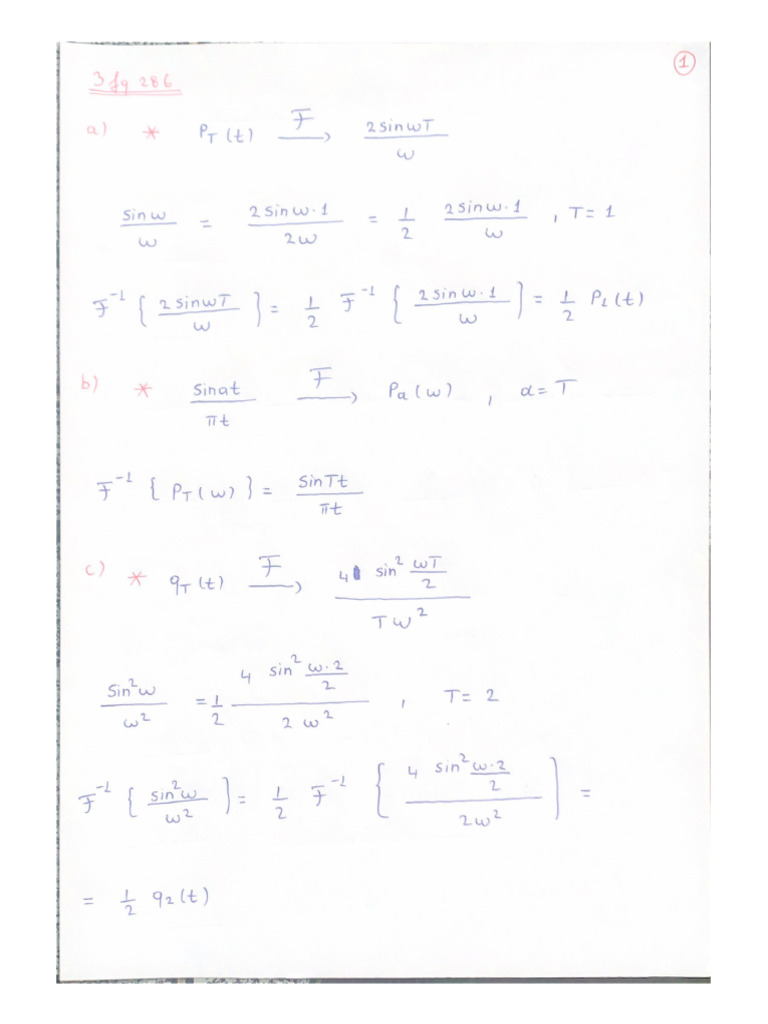 1
3 fq 286
a) * P_T(t) —F→ 2sinωT / ω
sinω / ω = 2sinω·1 / 2ω = 1/2 2sinω·1 / ω , T=1
F^-1 { 2sinωT / ω } = 1/2 F^-1 { 2sinω·1 / ω } = 1/2 P_1(t)
b) * sinat / πt —F→ Pa(ω) , α=T
F^-1 { P_T(ω) } = sinTt / πt
c) * q_T(t) —F→ 4 sin^2 ωT/2 / Tω^2
sin^2ω / ω^2 = 1/2 4 sin^2 ω·2/2 / 2ω^2 , T=2
F^-1 { sin^2ω / ω^2 } = 1/2 F^-1 { 4 sin^2 ω·2/2 / 2ω^2 } =
= 1/2 q_2(t)